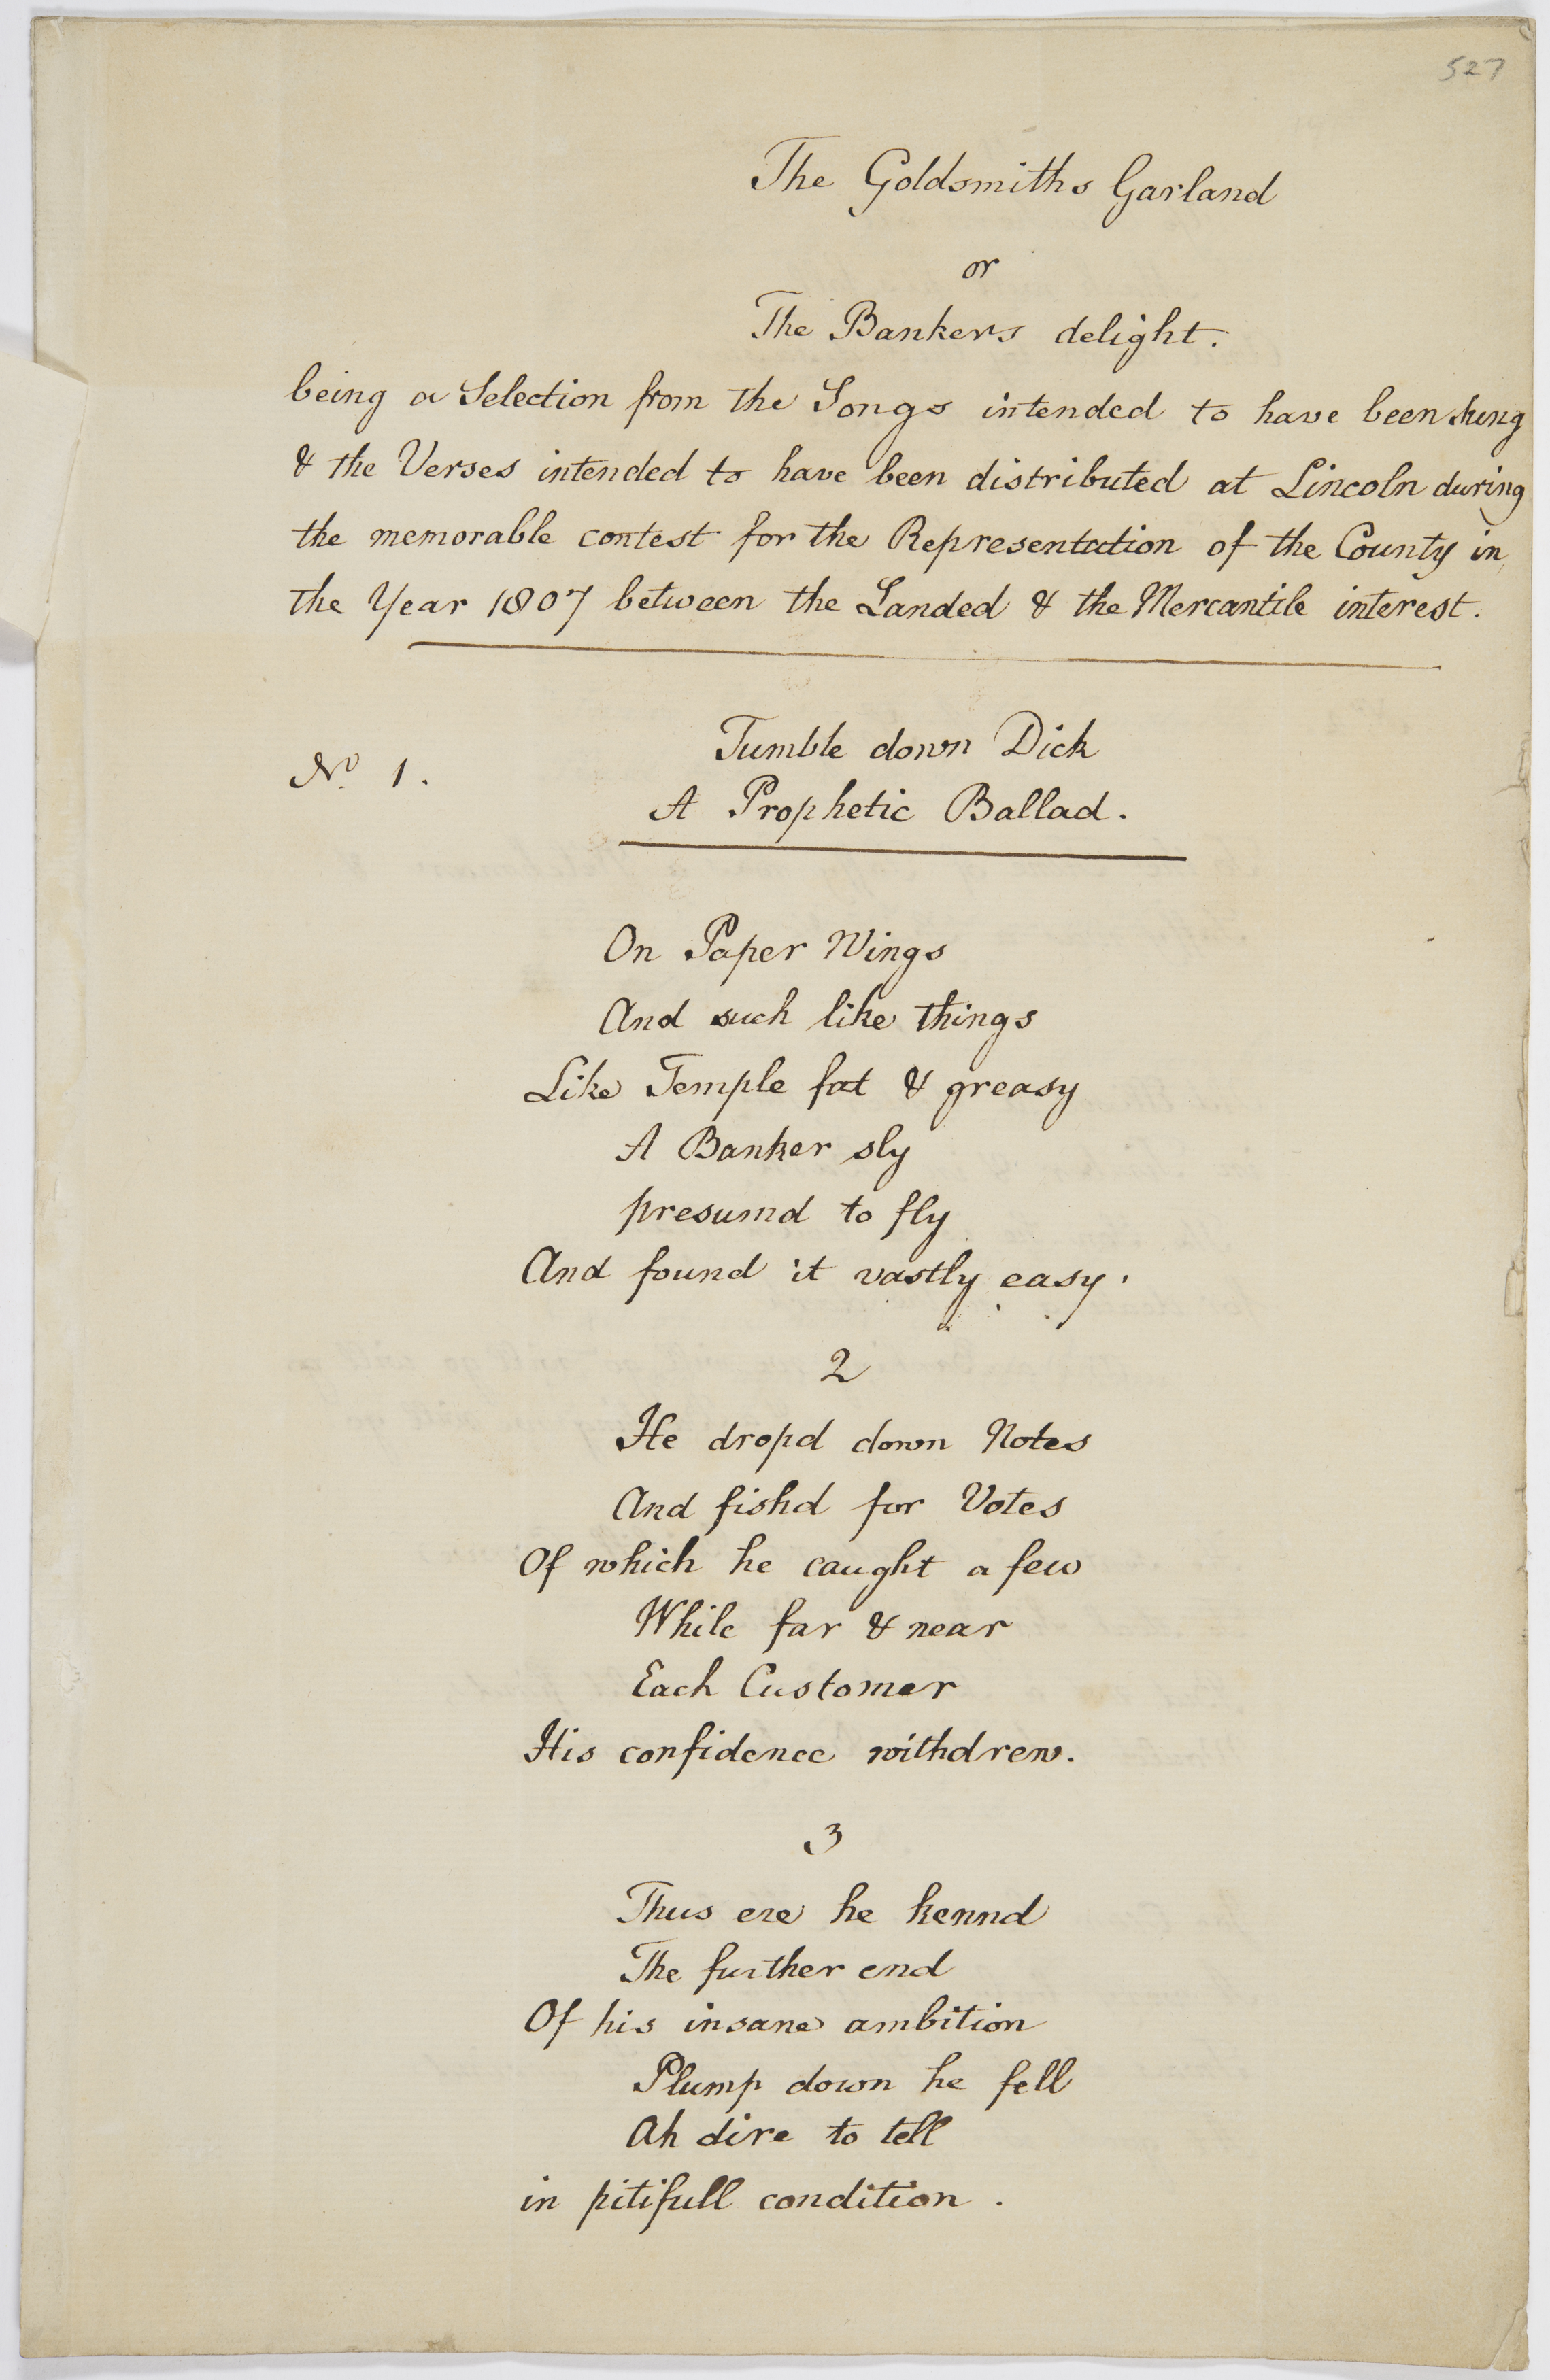 527
The Goldsmiths Garland
or
The Bankers delight.
being a Selection from the Songs intended to have been sung
& the Verses intended to have been distributed at Lincoln during
the memorable contest for the Representation of the County in
the Year 1807 between the Landed & the Mercantile interest.
No. 1.
Tumble down Dick
A Prophetic Ballad.
On Paper Wings
And such like things
Like Temple fat & greasy
A Banker sly
presumd to fly
And found it vastly easy.
2
He dropd down Notes
And fishd for Votes
Of which he caught a few
While far & near
Each Customer
His confidence withdrew.
3
Thus ere he kennd
The further end
Of his insane ambition
Plump down he fell
Ah dire to tell
in pitifull condition.